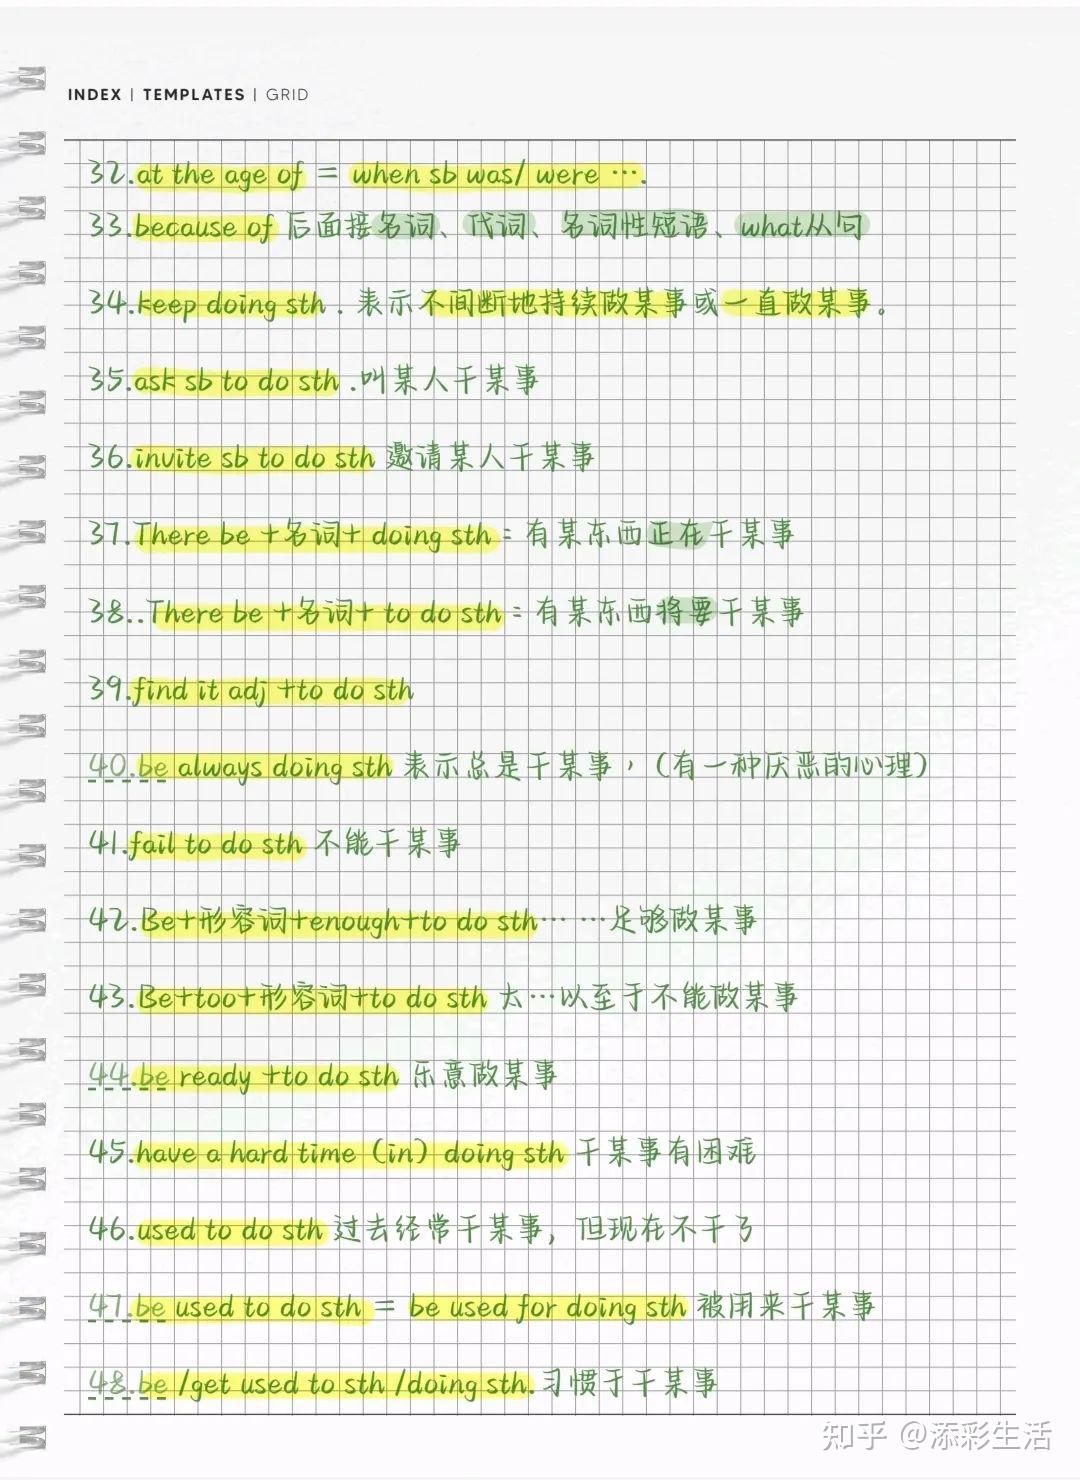 INDEX | TEMPLATES | GRID
32.at the age of = when sb was/ were ….
33.because of 后面接名词、代词、名词性短语、what从句
34.keep doing sth . 表示不间断地持续做某事或一直做某事。
35.ask sb to do sth .叫某人干某事
36.invite sb to do sth 邀请某人干某事
37.There be +名词+ doing sth : 有某东西正在干某事
38..There be +名词+ to do sth : 有某东西将要干某事
39.find it adj +to do sth
40.be always doing sth 表示总是干某事，(有一种厌恶的心理)
41.fail to do sth 不能干某事
42.Be+形容词+enough+to do sth… …足够做某事
43.Be+too+形容词+to do sth 太…以至于不能做某事
44.be ready +to do sth 乐意做某事
45.have a hard time (in) doing sth 干某事有困难
46.used to do sth 过去经常干某事, 但现在不干了
47.be used to do sth = be used for doing sth 被用来干某事
48.be /get used to sth /doing sth.习惯于干某事
知乎 @添彩生活